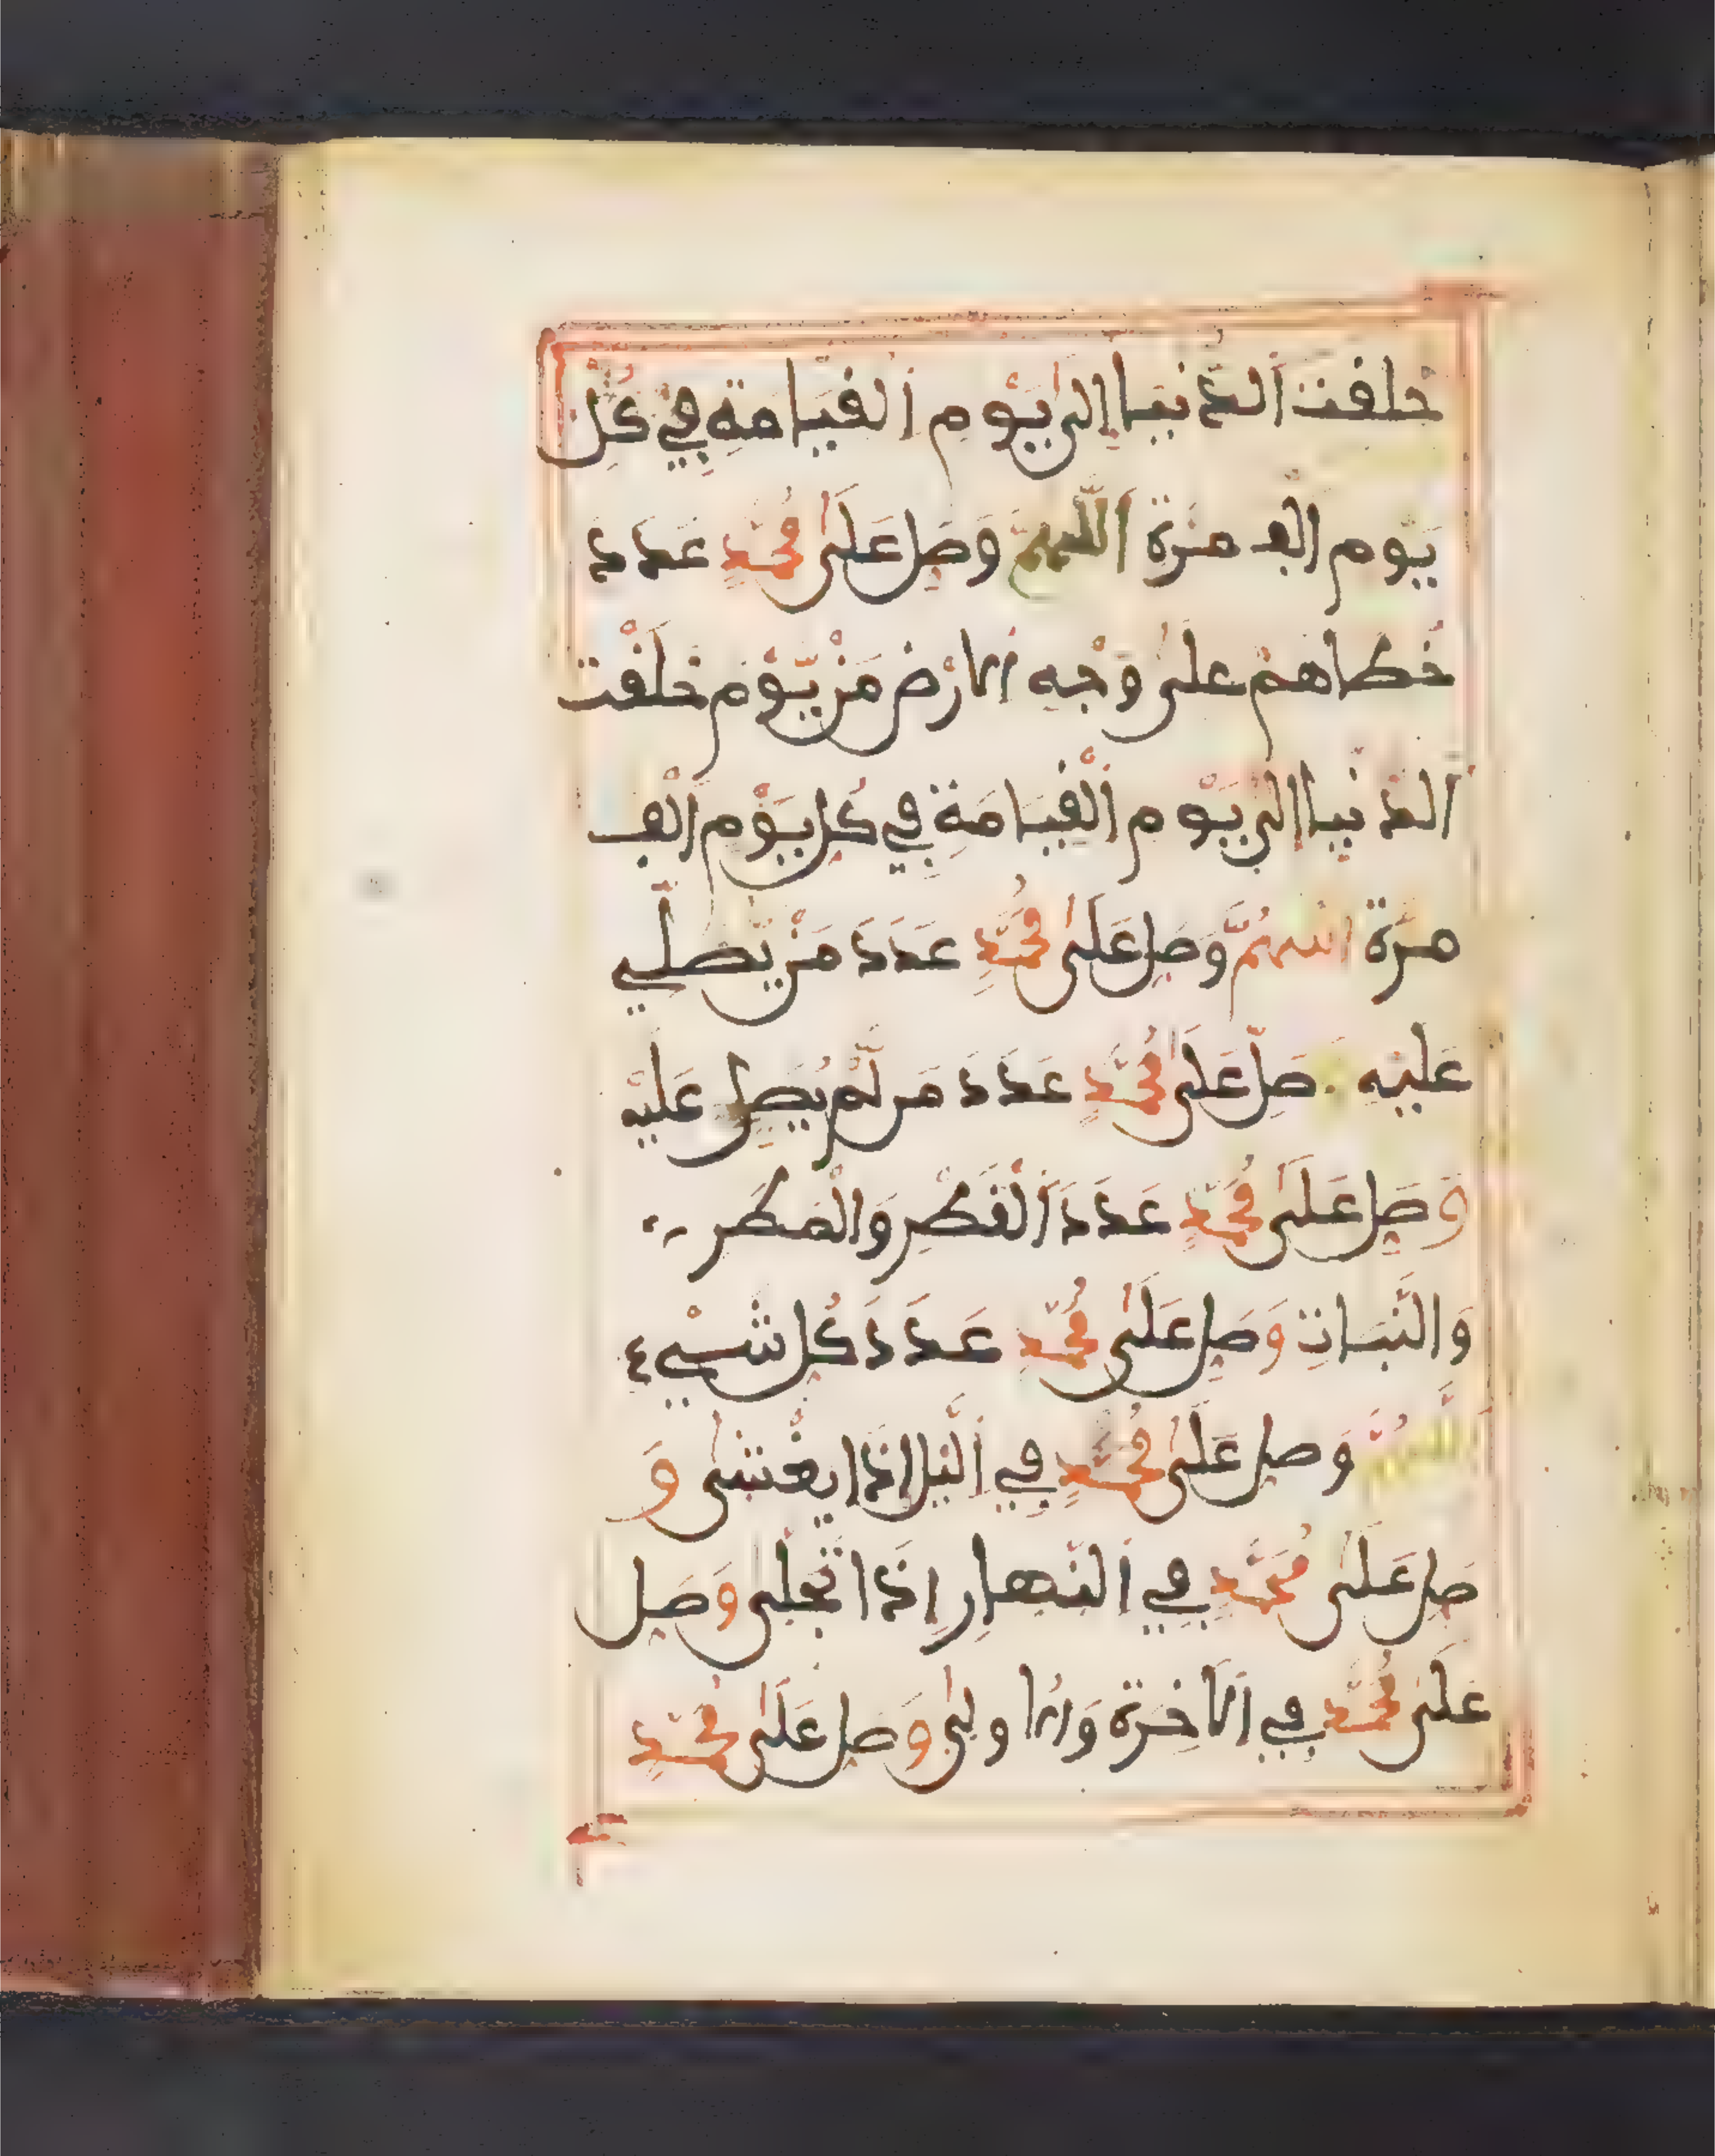 خلقت الدنيا إلى يوم القيامة في كل
يوم ألف مرة اللهم وصل على محمد عدد
خطاهم على وجه الارض من يوم خلقت
الدنيا إلى يوم القيامة في كل يوم ألف
مرة اللهم وصل على محمد عدد من يصلي
عليه صل على محمد عدد من لم يصل عليه
وصل على محمد عدد القطر والمطر
والنبات وصل على محمد عدد كل شيء
اللهم وصل على محمد في اليل اذا يغشى و
صل على محمد في النهار إذا تجلى وصل
على محمد في الآخرة والاولى وصل على محمد